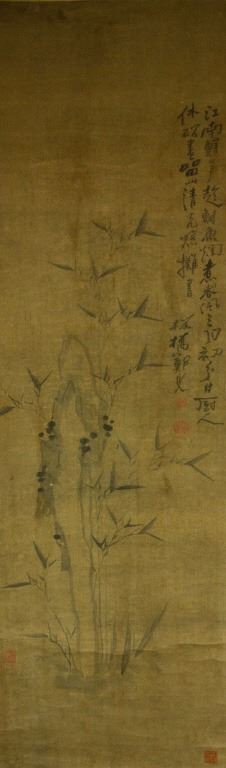 江南鮮筍趁鰣魚爛煮春風三月初分付廚人
休斫盡留此清光照攤書
板橋鄭燮